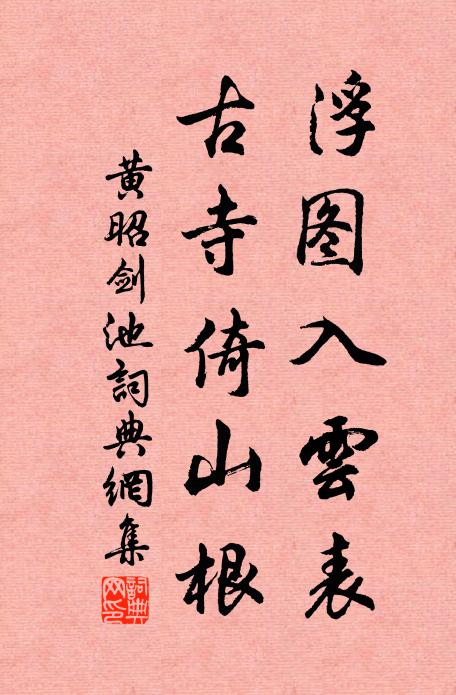 浮图入雲表
古寺倚山根
黄昭剑池詞典網集
詞典网印